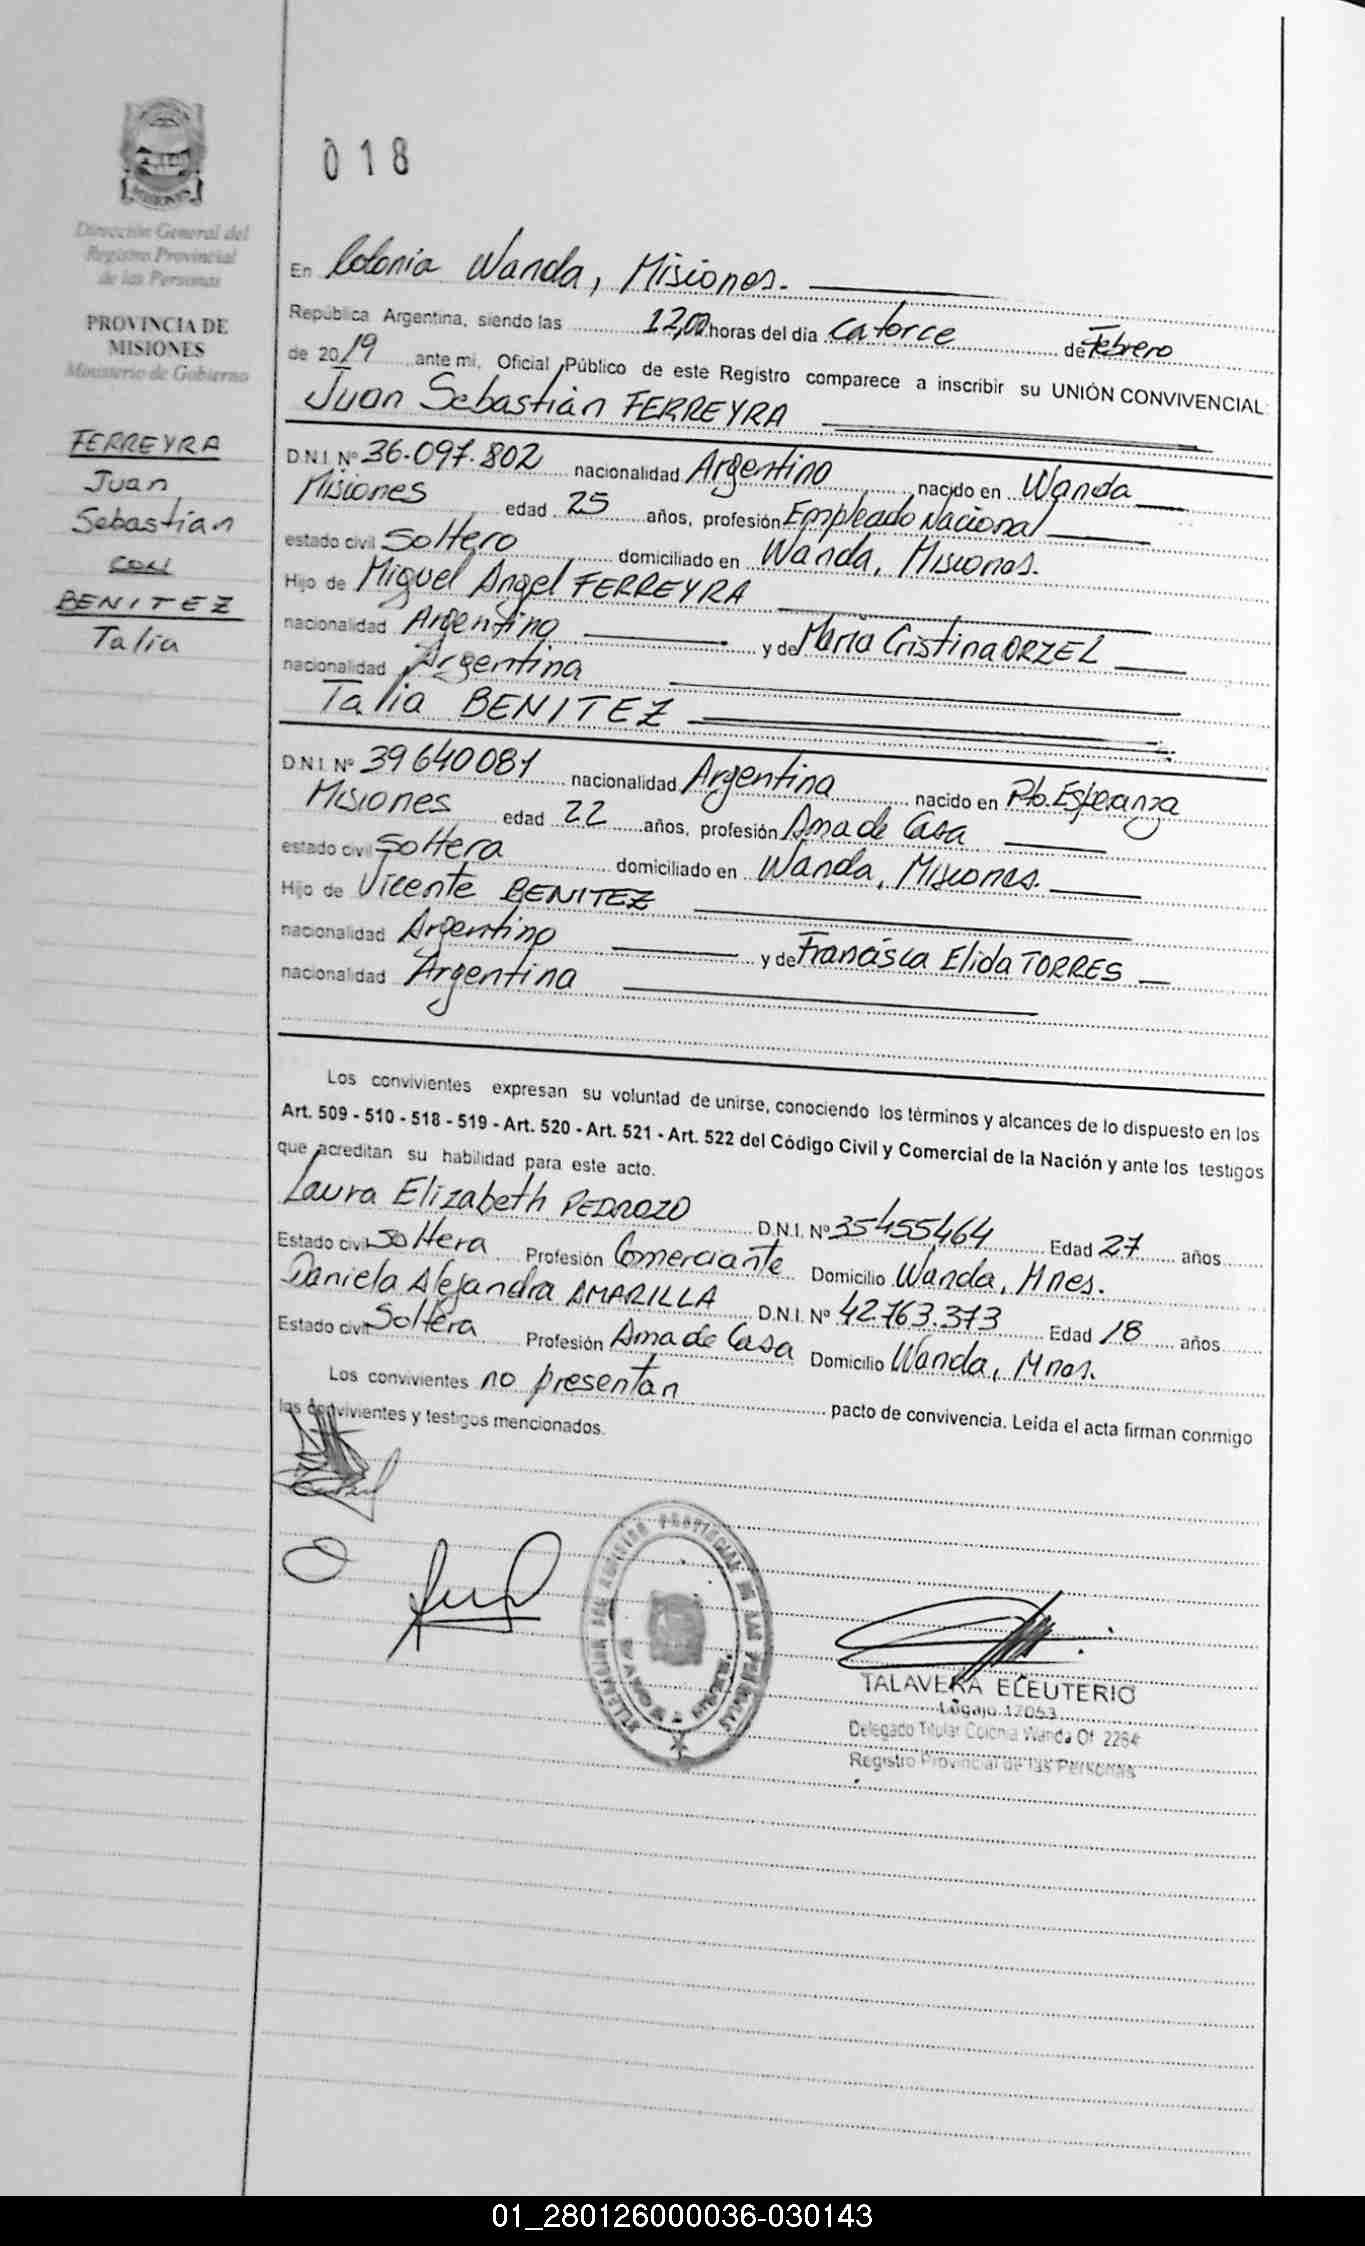 018
Dirección General del
Registro Provincial
de las Personas
PROVINCIA DE
MISIONES
Ministerio de Gobierno
FERREYRA
Juan
Sebastián
con
BENITEZ
Talia
En Colonia Wanda, Misiones.
República Argentina, siendo las 12,00 horas del día catorce de Febrero
de 2019 ante mi, Oficial Público de este Registro comparece a inscribir su UNIÓN CONVIVENCIAL:
Juan Sebastián FERREYRA
D.N.I. Nº 36.097.802 nacionalidad Argentino, nacido en Wanda
Misiones edad 25 años, profesión Empleado Nacional
estado civil Soltero domiciliado en Wanda, Misiones.
Hijo de Miguel Angel FERREYRA
nacionalidad Argentino y de María Cristina ORZEL
nacionalidad Argentina
Talia BENITEZ
D.N.I. Nº 39640081 nacionalidad Argentina nacido en Pto. Esperanza
Misiones edad 22 años, profesión Ama de Casa
estado civil Soltera domiciliado en Wanda, Misiones.
Hijo de Vicente BENITEZ
nacionalidad Argentino y de Francisca Elida TORRES
nacionalidad Argentina
Los convivientes expresan su voluntad de unirse, conociendo los términos y alcances de lo dispuesto en los
Art. 509 - 510 - 518 - 519 - Art. 520 - Art. 521 - Art. 522 del Código Civil y Comercial de la Nación y ante los testigos
que acreditan su habilidad para este acto.
Laura Elizabeth PEDROZO D.N.I. Nº 35455464 Edad 27 años
Estado civil Soltera Profesión Comerciante Domicilio Wanda, Mnes.
Daniela Alejandra AMARILLA D.N.I. Nº 42.763.373 Edad 18 años
Estado civil Soltera Profesión Ama de Casa Domicilio Wanda, Mnes.
Los convivientes no presentan pacto de convivencia. Leída el acta firman conmigo
los convivientes y testigos mencionados.
TALAVERA ELEUTERIO
Legajo 17053
Delegado Titular Colonia Wanda Of. 2284
Registro Provincial de las Personas
01_280126000036-030143